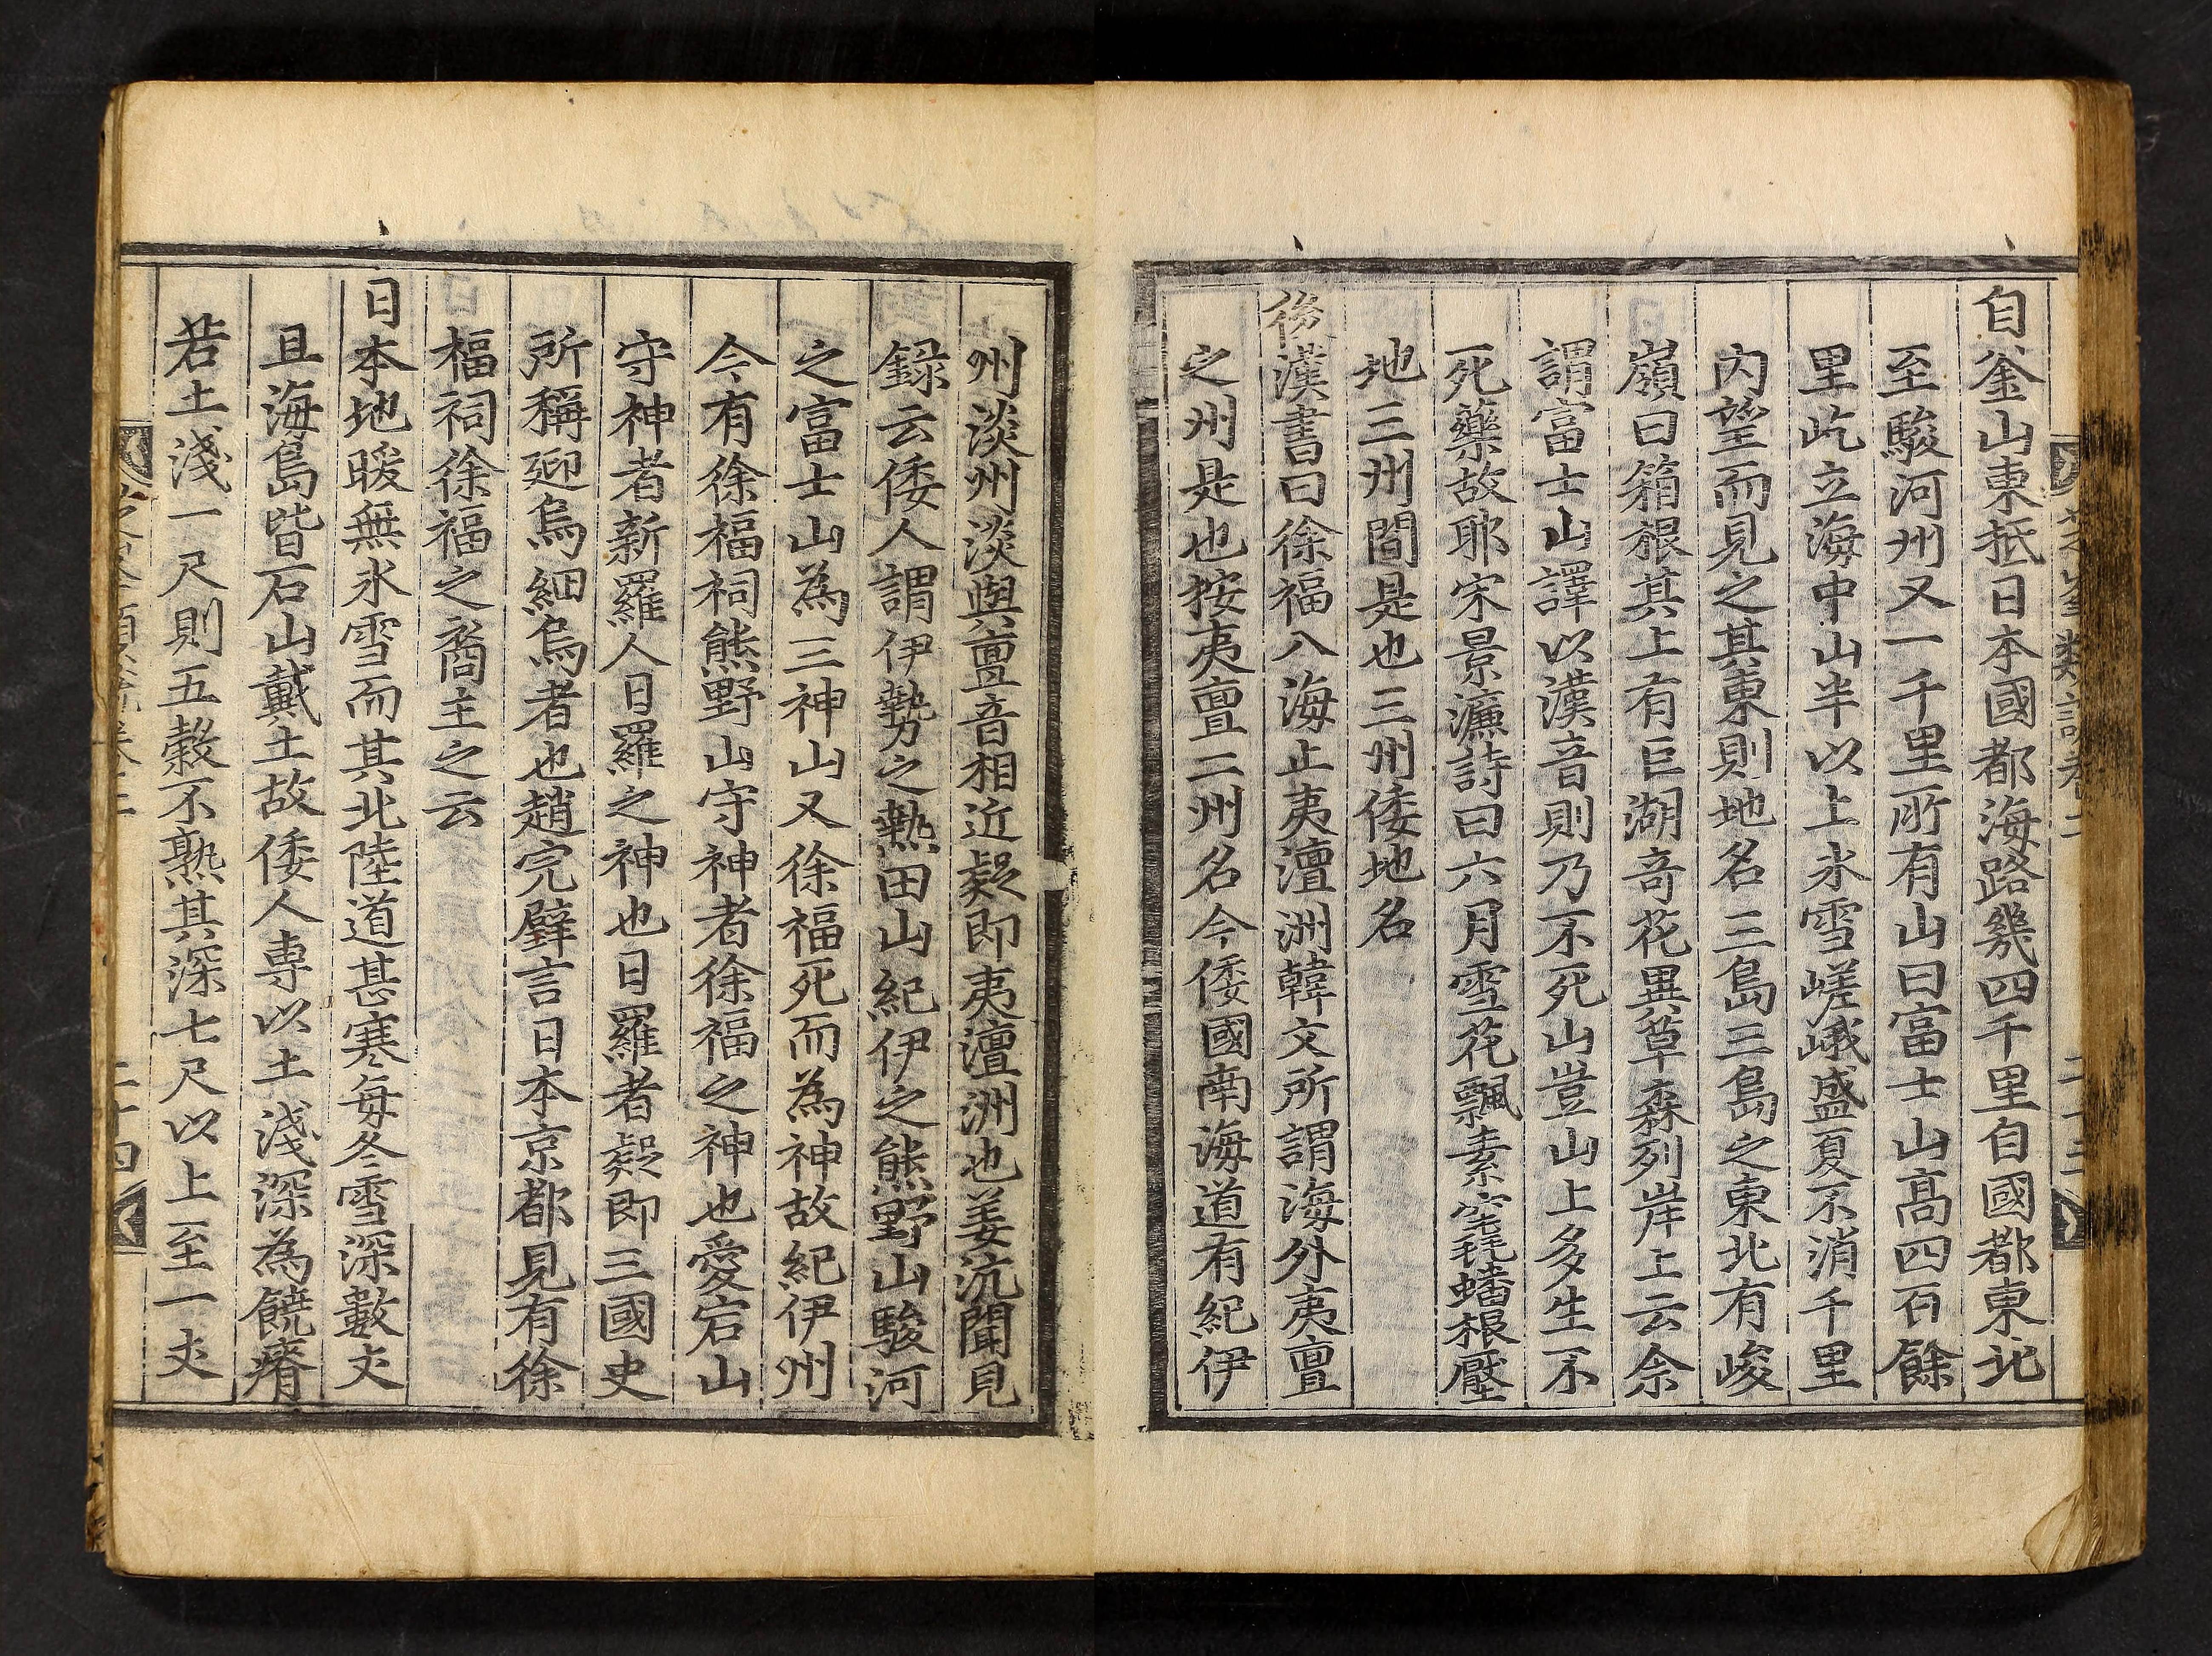 自釜山東抵日本國都海路幾四千里自國都東北
至駿河州又一千里所有山曰富士山高四百餘
里屹立海中山半以上氷雪嵯峨盛夏不消千里
内望而見之其東則地名三島三島之東北有峻
嶺曰箱根其上有巨湖奇花異草森列岸上云余
謂富士山譯以漢音則乃不死山豈山上多生不
死藥故耶宋景濂詩曰六月雪花飄素毳蟠根壓
地三州間是也三州倭地名
後漢書曰徐福入海止夷澶洲韓文所謂海外夷亶
之州是也按夷亶二州名今倭國南海道有紀伊
州淡州淡與亶音相近疑即夷澶洲也姜沆聞見
録云倭人謂伊勢之熱田山紀伊之熊野山駿河
之富士山為三神山又徐福死而為神故紀伊州
今有徐福祠熊野山守神者徐福之神也愛宕山
守神者新羅人日羅之神也日羅者疑即三國史
所稱迎烏細烏者也趙完璧言日本京都見有徐
福祠徐福之裔主之云
日本地暖無氷雪而其北陸道甚寒每冬雪深數丈
且海島皆石山戴土故倭人專以土淺深為饒瘠
若土淺一尺則五穀不熟其深七尺以上至一丈